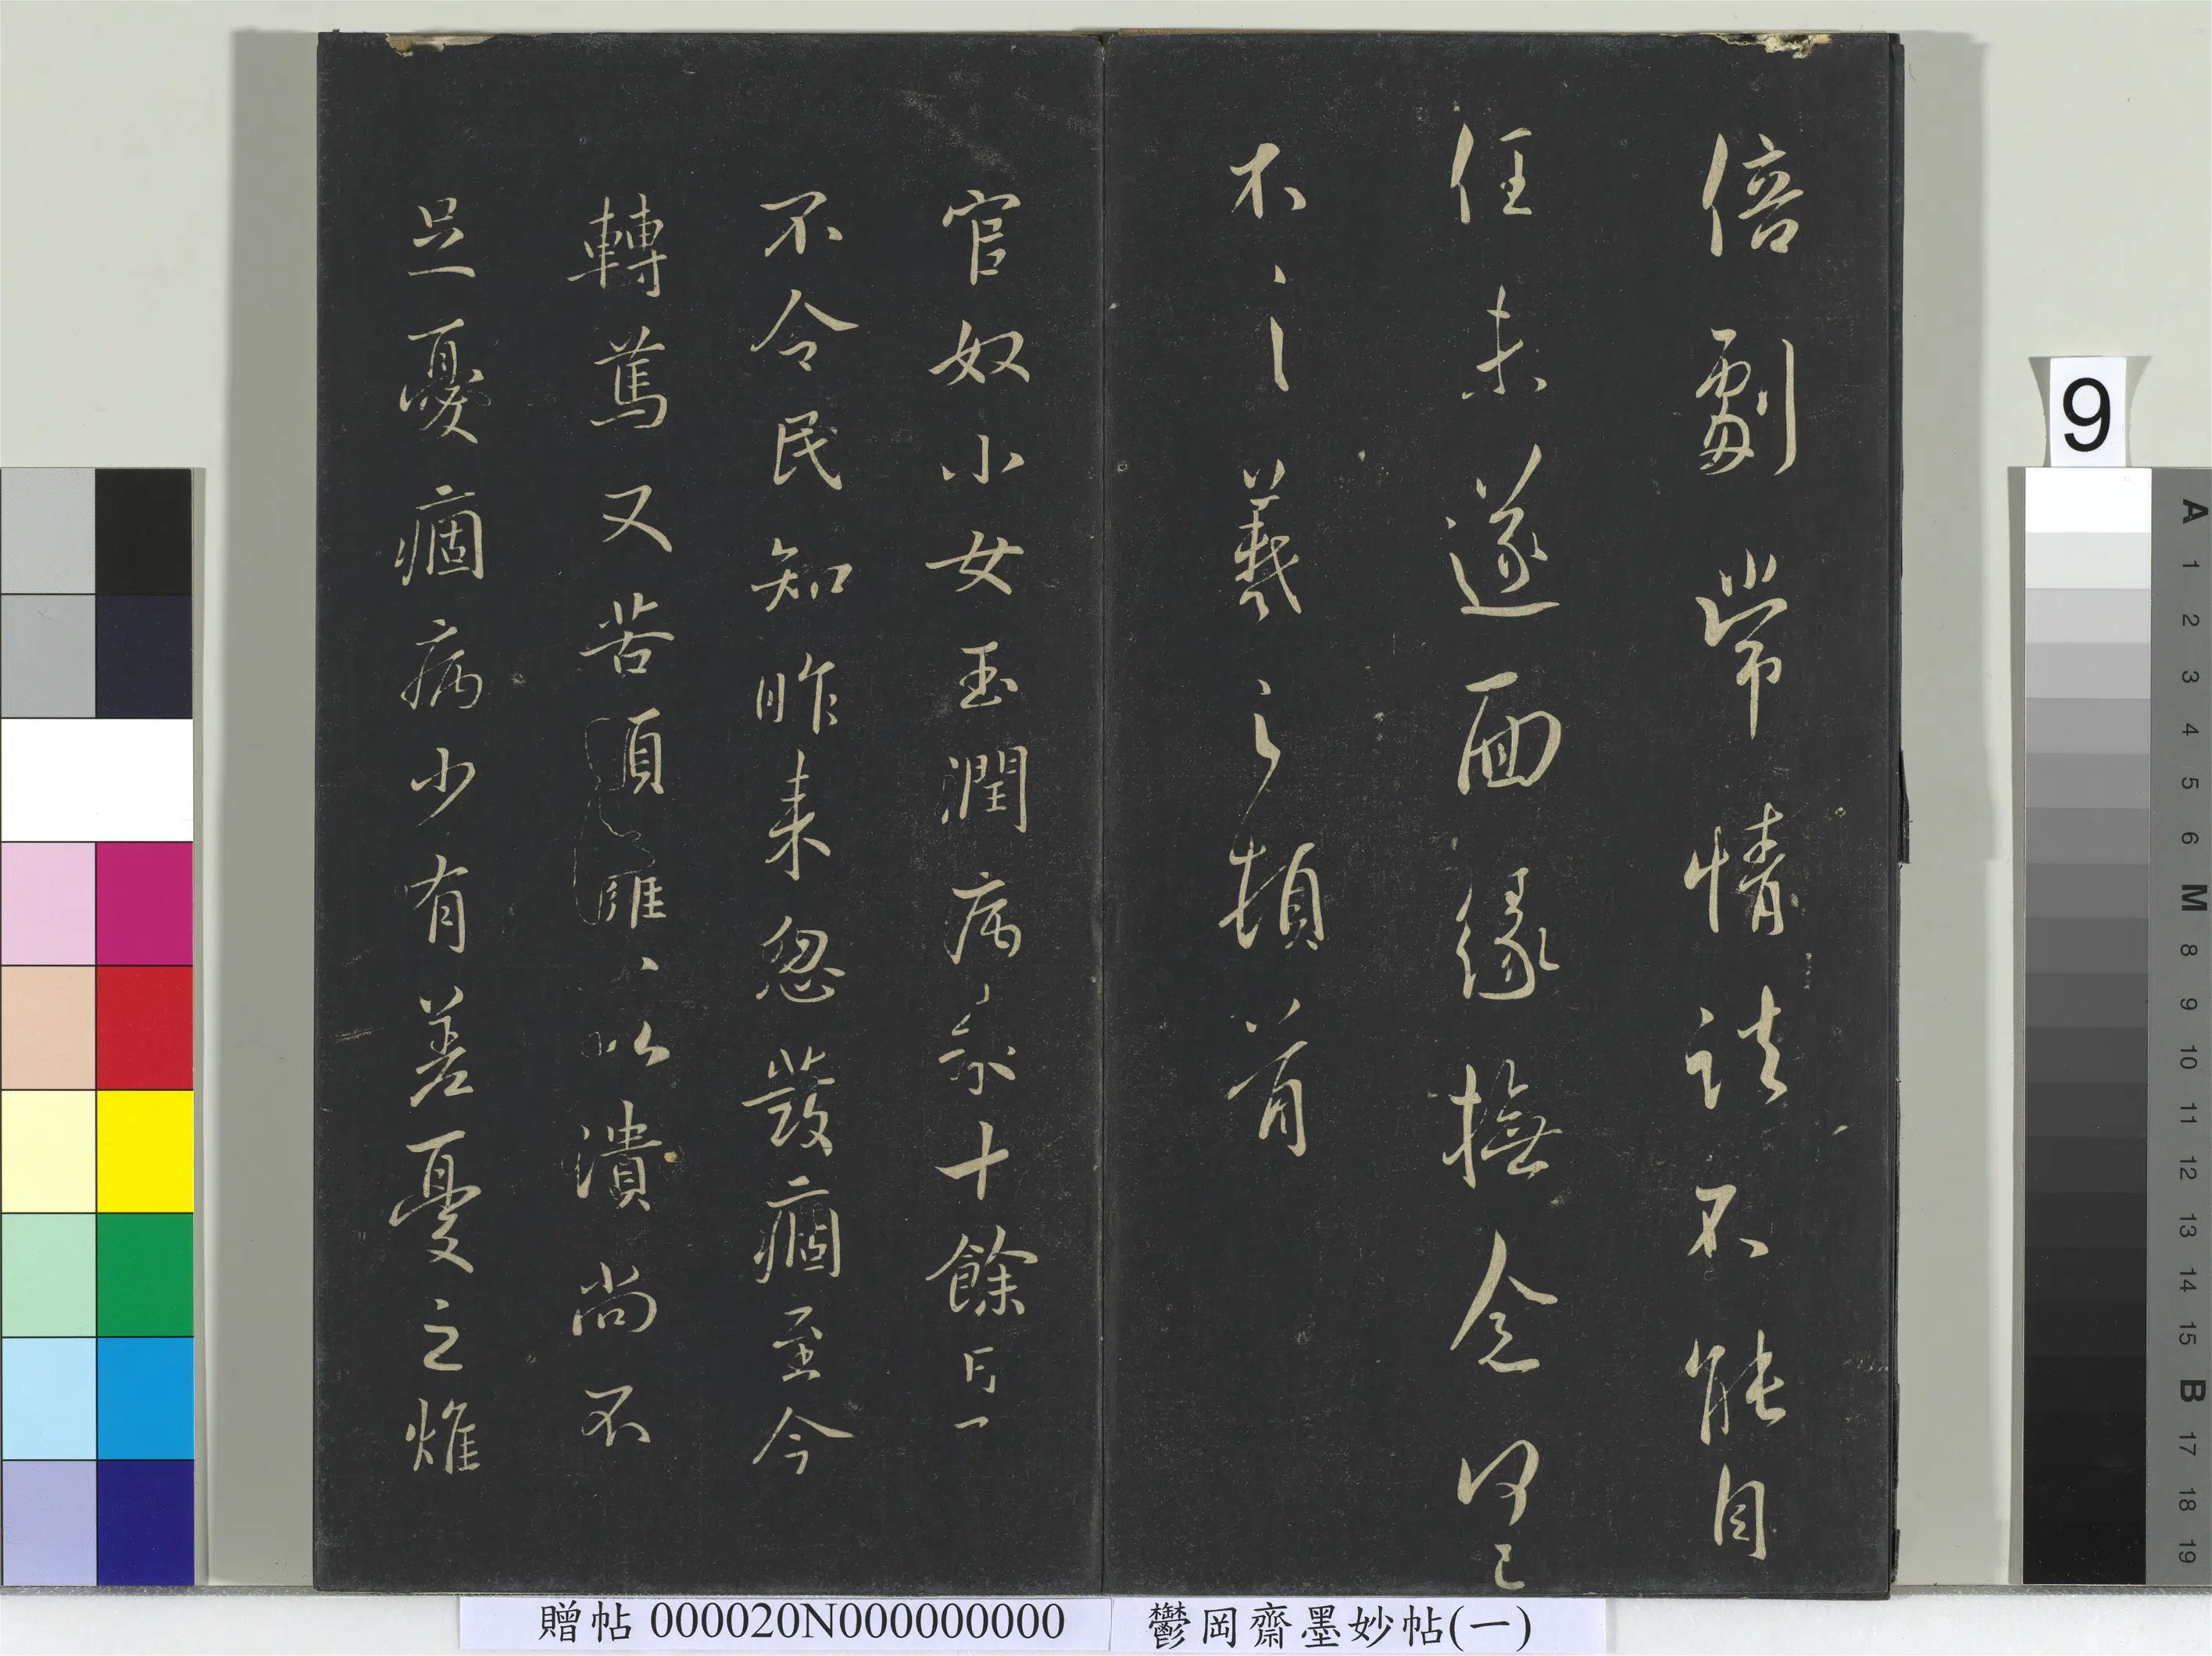 倍劇常情諸不能自
任未遂面緣撫念何已
不一一羲之頓首
官奴小女玉潤病來十餘日一
不令民知昨來忽發痼至今
轉篤又苦頭癰、以潰尚不
足憂痼病少有差憂之燋
9
A 1 2 3 4 5 6 M 8 9 10 11 12 13 14 15 B 17 18 19
贈帖 000020N000000000
鬱岡齋墨妙帖(一)